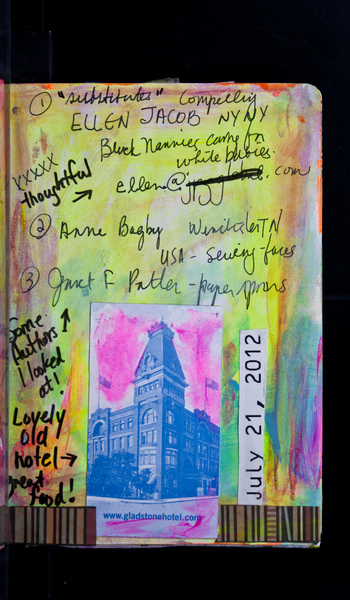 ① "Substitutes" Compelling
ELLEN JACOB NYNY
Black Nannies caring for
white babies.
XXXXX
thoughtful
ellen@ .com
② Anne Bagby Winchester TN
USA - Sewing-faces
③ Janet F Potter - paper aprons
Some
Authors
I looked
at!
Lovely
old
hotel →
great
food!
www.gladstonehotel.com
July 21, 2012